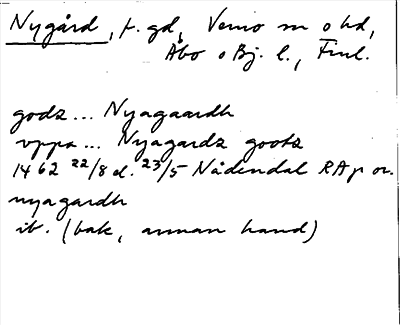 Nygård, f. gd, Vemo sn o hd,
Åbo o Bj. l., Finl.
godz ... Nyagaardh
vppa ... Nyagardz gootz
1462 22/8 el. 23/5 Nådendal RAp or.
nyagardh
ib. (bak, annan hand)